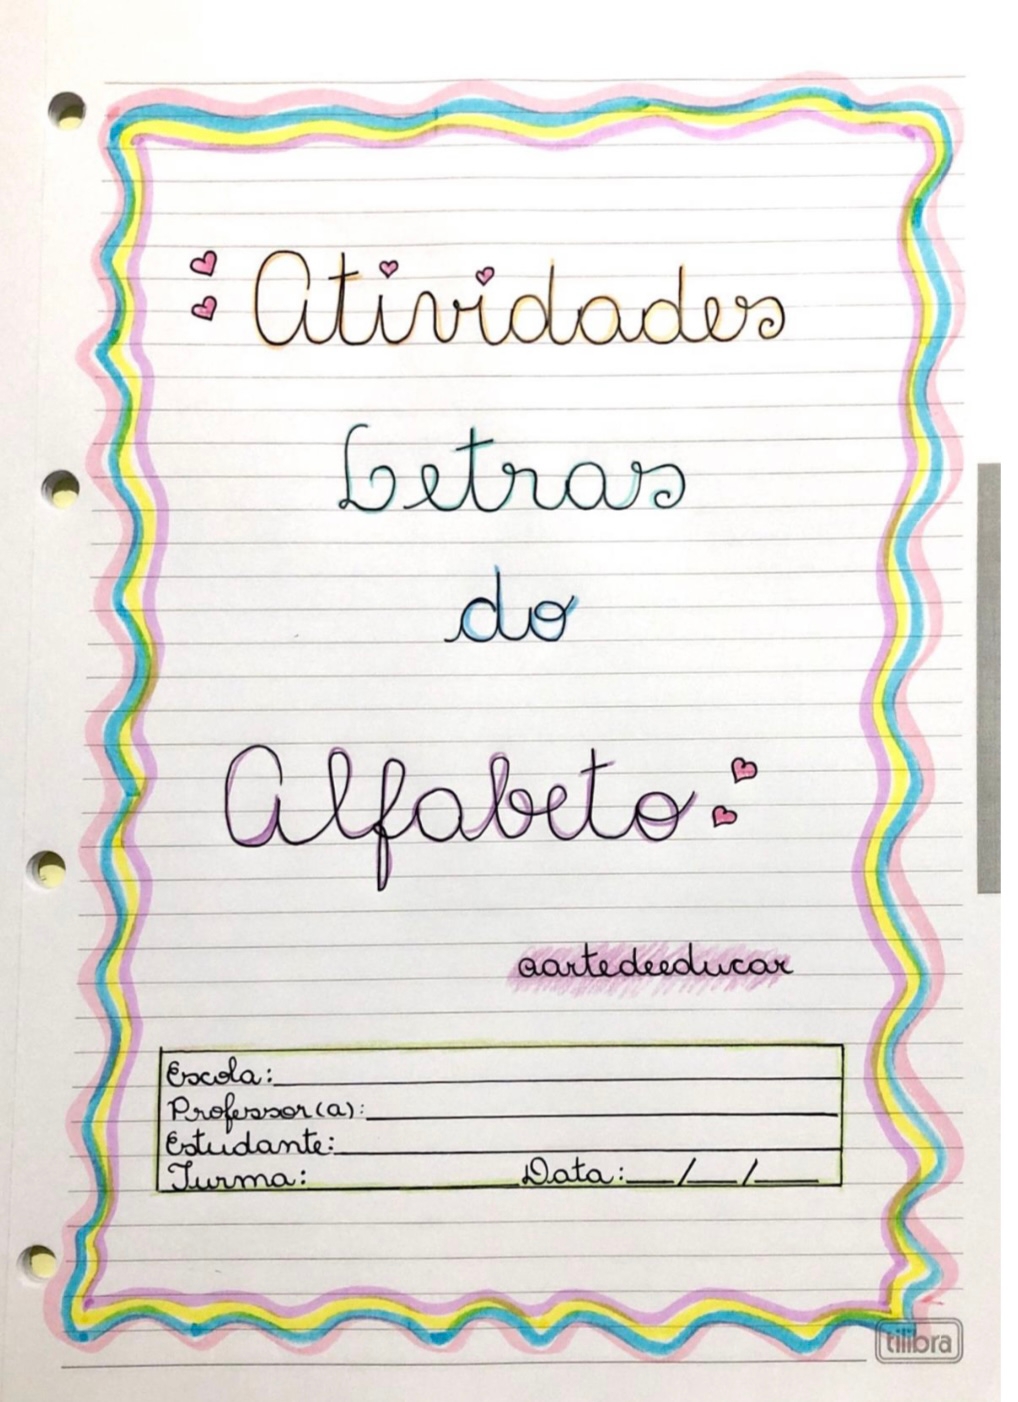 Atividades
Letras
do
Alfabeto
@artedeeducar
Escola:
Professor(a):
Estudante:
Turma: Data: __/__/__
tilibra